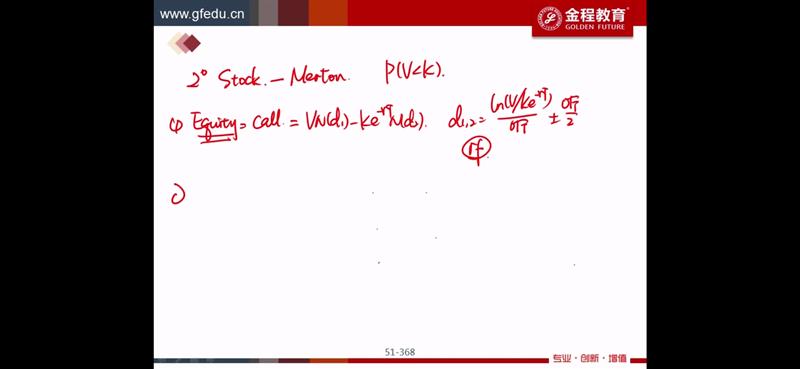 www.gfedu.cn
金程教育
GOLDEN FUTURE
2° Stock - Merton. P(V<K).
(1) Equity = call = VN(d₁) - Ke^{-rT}N(d₂). d₁,₂ = ln(V/Ke^{-rT}) / σ√T ± σ√T / 2
rf
51-368
专业·创新·增值